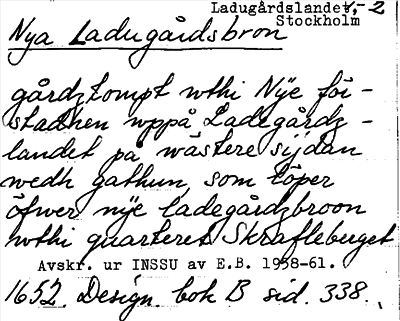 Ladugårdslandet, - 2
Stockholm
Nya Ladugårdsbron
gårdztompt uthi Nÿe för-
stadhen uppå Ladegårdz-
landet på wästere sijdan
wedh gathun, som löper
öfwer nÿe ladegårdzbroon
uthi quarteret Skrafleberget
Avskr. ur INSSU av E.B. 1958-61.
1652. Design. bok B sid. 338.